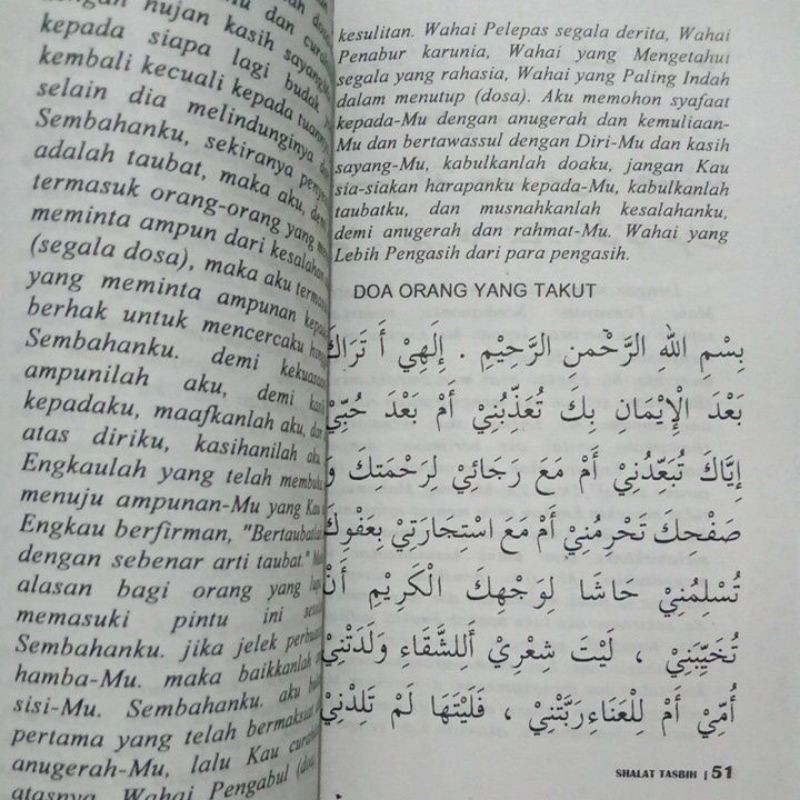 hujan kasih
kepada siapa lagi budak
kembali kecuali kepada
selain dia melindunginya
Sembahanku, sekiranya
adalah taubat, maka aku,
termasuk orang-orang yang
meminta ampun dari kesalahan
(segala dosa), maka aku
yang meminta ampunan
berhak untuk mencercaku
Sembahanku. demi
ampunilah aku, demi
kepadaku, maafkanlah aku,
atas diriku, kasihanilah aku.
Engkaulah yang telah
menuju ampunan-Mu yang
Engkau berfirman,
dengan sebenar arti taubat."
alasan bagi orang yang
memasuki pintu ini
Sembahanku. jika jelek
hamba-Mu. maka baikkanlah
sisi-Mu. Sembahanku. aku
pertama yang telah
anugerah-Mu, lalu Kau
atasnya. Wahai Pengabul
kesulitan. Wahai Pelepas segala derita, Wahai
Penabur karunia, Wahai yang Mengetahui
segala yang rahasia, Wahai yang Paling Indah
dalam menutup (dosa). Aku memohon syafaat
kepada-Mu dengan anugerah dan kemuliaan-
Mu dan bertawassul dengan Diri-Mu dan kasih
sayang-Mu, kabulkanlah doaku, jangan Kau
sia-siakan harapanku kepada-Mu, kabulkanlah
taubatku, dan musnahkanlah kesalahanku,
demi anugerah dan rahmat-Mu. Wahai yang
Lebih Pengasih dari para pengasih.
DOA ORANG YANG TAKUT
بِسْمِ اللهِ الرَّحْمنِ الرَّحِيْمِ . إِلَهِيْ أَ تَرَاكَ
بَعْدَ الْإِيْمَانِ بِكَ تُعَذِّبُنِيْ أَمْ بَعْدَ حُبِّيْ
إِيَّاكَ تُبَعِّدُنِيْ أَمْ مَعَ رَجَائِيْ لِرَحْمَتِكَ وَ
صَفْحِكَ تَحْرِمُنِيْ أَمْ مَعَ اسْتِجَارَتِيْ بِعَفْوِكَ
تُسْلِمُنِيْ حَاشَا لِوَجْهِكَ الْكَرِيْمِ أَنْ
تُخَيِّبَنِيْ ، لَيْتَ شِعْرِيْ أَلِلشَّقَاءِ وَلَدَتْنِيْ
أُمِّيْ أَمْ لِلْعَنَاءِ رَبَّتْنِيْ ، فَلَيْتَهَا لَمْ تَلِدْنِيْ
SHALAT TASBIH | 51